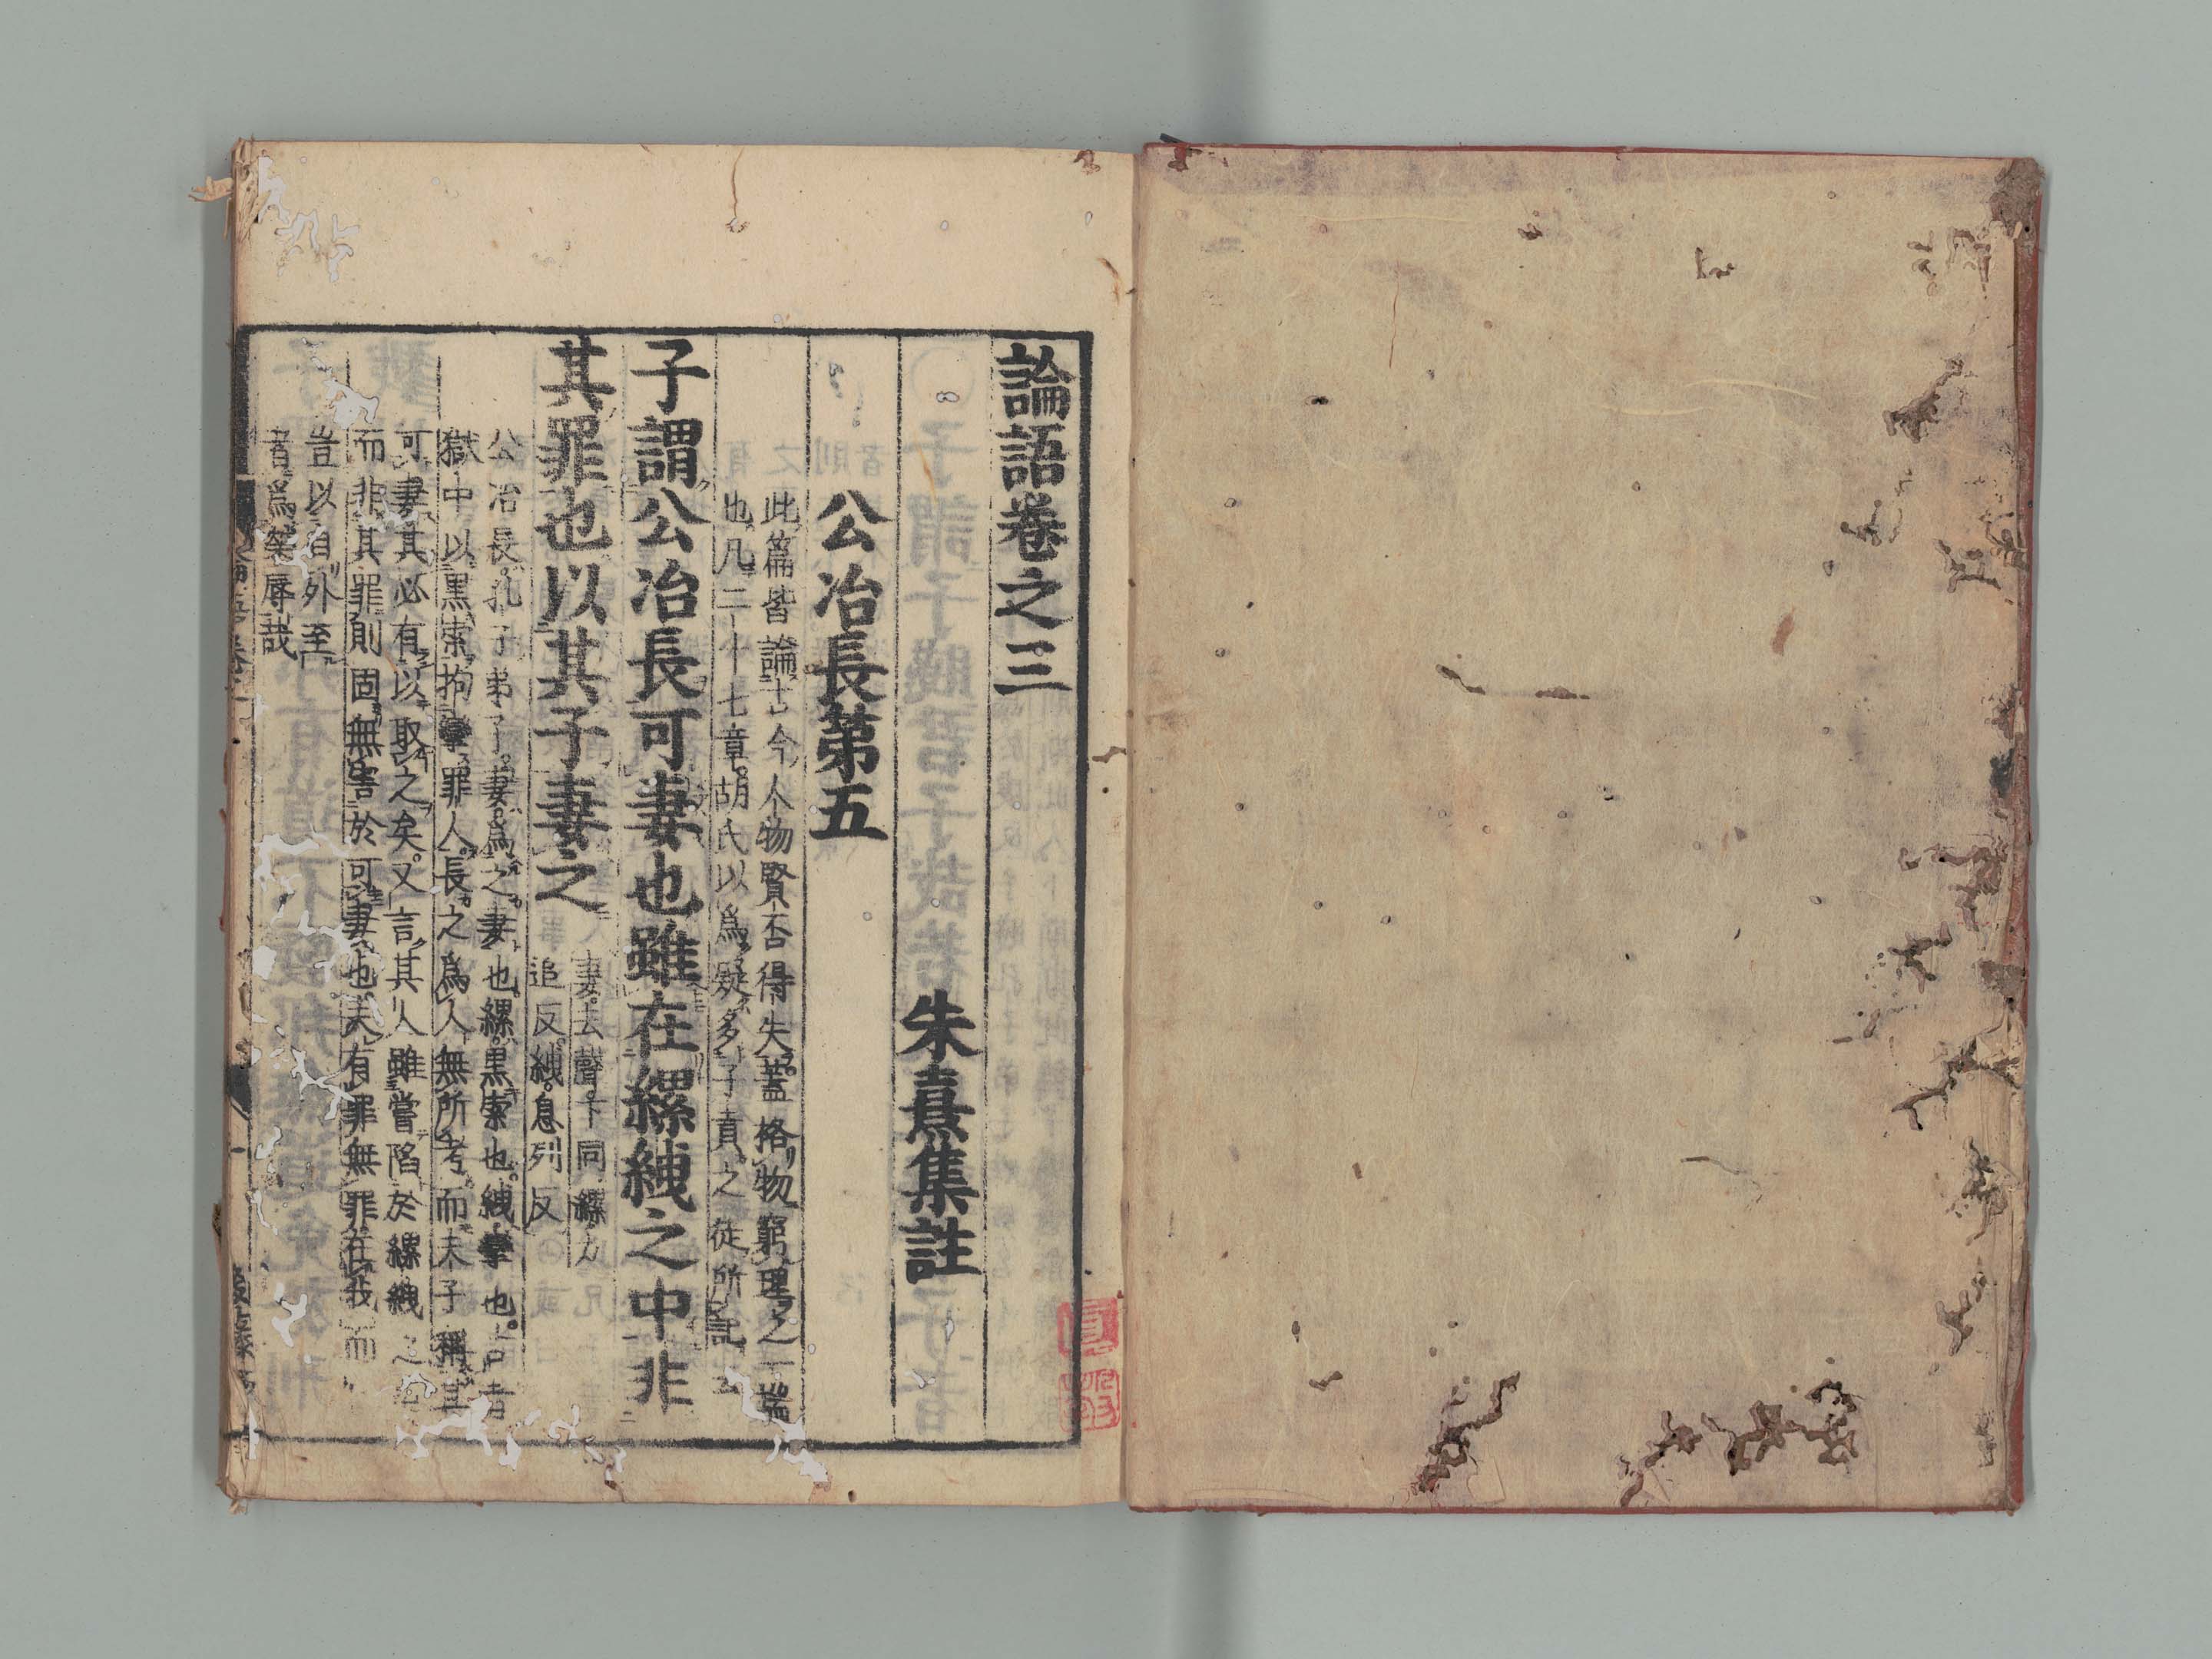 論語卷之三
朱熹集註
公冶長第五
此篇皆論古今人物賢否得失蓋格物窮理之一端
也凡二十七章胡氏以爲疑多子貢之徒所記云
子謂公冶長可妻也雖在縲絏之中非
其罪也以其子妻之
妻去聲下同縲力
追反絏息列反
公冶長孔子弟子妻爲之妻也縲黒索也絏攣也古者
獄中以黒索拘攣罪人長之爲人無所考而夫子稱其
可妻其必有以取之矣又言其人雖嘗陷於縲絏之中
而非其罪則固無害於可妻也夫有罪無罪在我而
豈以自外至
者爲榮辱哉